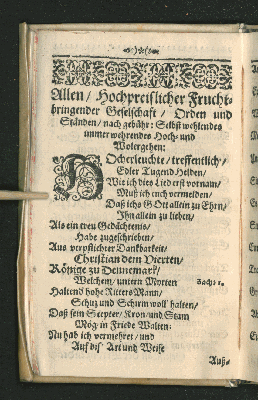 Allen / Hochpreislicher Frucht-
bringender Geselschaft / Orden und
Ständen / nach gebühr: Selbst wehlendes
immer wehrendes Hoch- und
Wolergehen:
Hocherleuchte / treffentlich /
Edler Tugend Helden /
Wie ich dies Lied erst vornam /
Muß ich euch vermelden /
Daß ichs GOtt allein zu Ehrn /
Ihn allein zu lieben /
Als ein treu Gedächtenis /
Habe zugeschrieben /
Aus verpflichter Danckbarkeit /
Christian dem Vierten /
Könige zu Dennemarck /
Welchem / untern Morten
Haltend hohe Ritters Mann /
Schutz und Schirm voll halten /
Daß sein Scepter / Kron / und Stam
Mög in Friede Walten:
Nu hab ich vermehret / und
Auf dis Art und Weise
Auß-